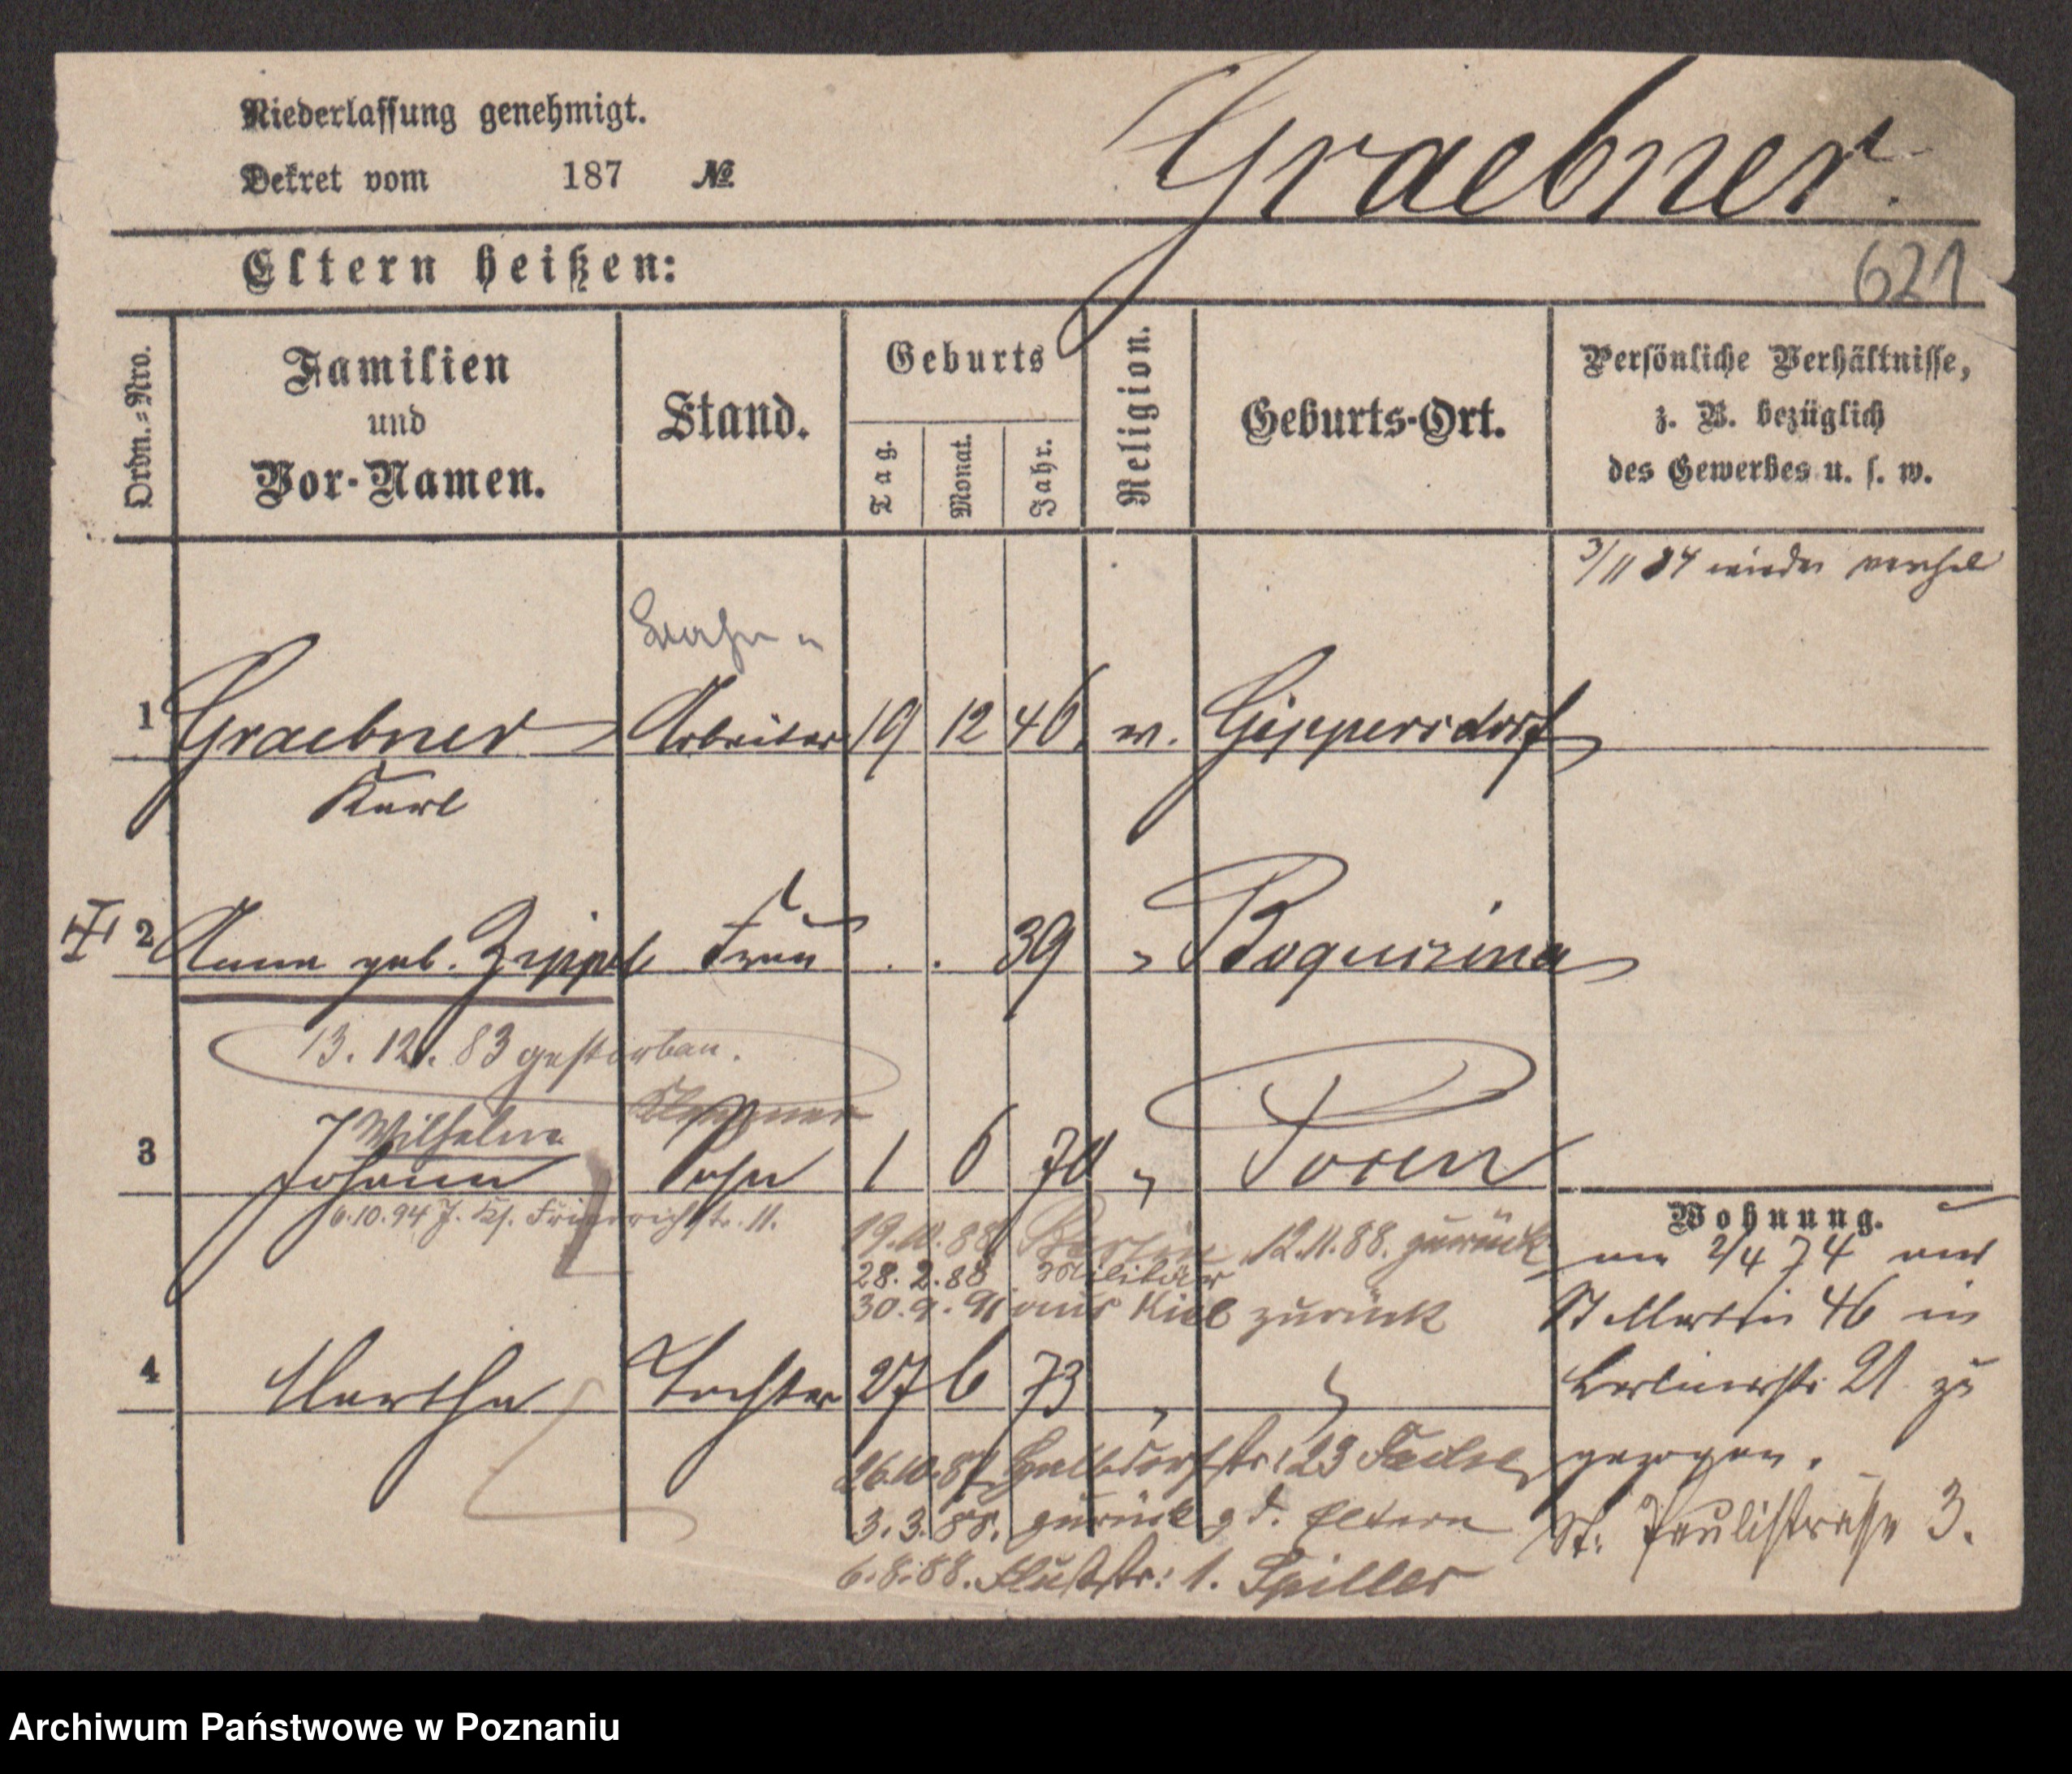 Niederlassung genehmigt.
Dekret vom 187 №
Graebner.
621
Eltern heißen:
Ordn.=Nro.
Familien
und
Vor-Namen.
Stand.
Geburts
Tag.
Monat.
Jahr.
Religion.
Geburts-Ort.
Persönliche Verhältnisse,
z. B. bezüglich
des Gewerbes u. s. w.
3/11 84 wieder
1 Graebner Arbeiter 19 12 46 Gippersdorf
Karl
2 Anna geb. Zippel Frau . . 39 " Boguszina
13. 12. 83 gestorben.
Wilhelm
3 Johann Sohn 1 6 70 " Posen
6.10.94 11.
19.10.88 Berlin 12.11.88. zurück
28. 2. 88 Militär
30. 9. 91 aus Kiel zurück
4 Martha Tochter 27 6 73 " "
26.10.87 Halbdorfstr: 23
3. 3. 88. zurück z d. Eltern
6. 8. 88. 1. Spiller
Wohnung.
am 2/4 74 von
St Martin 46 in
Berlinerstr 21 zu
gezogen.
St. Paulistrasse 3.
Archiwum Państwowe w Poznaniu